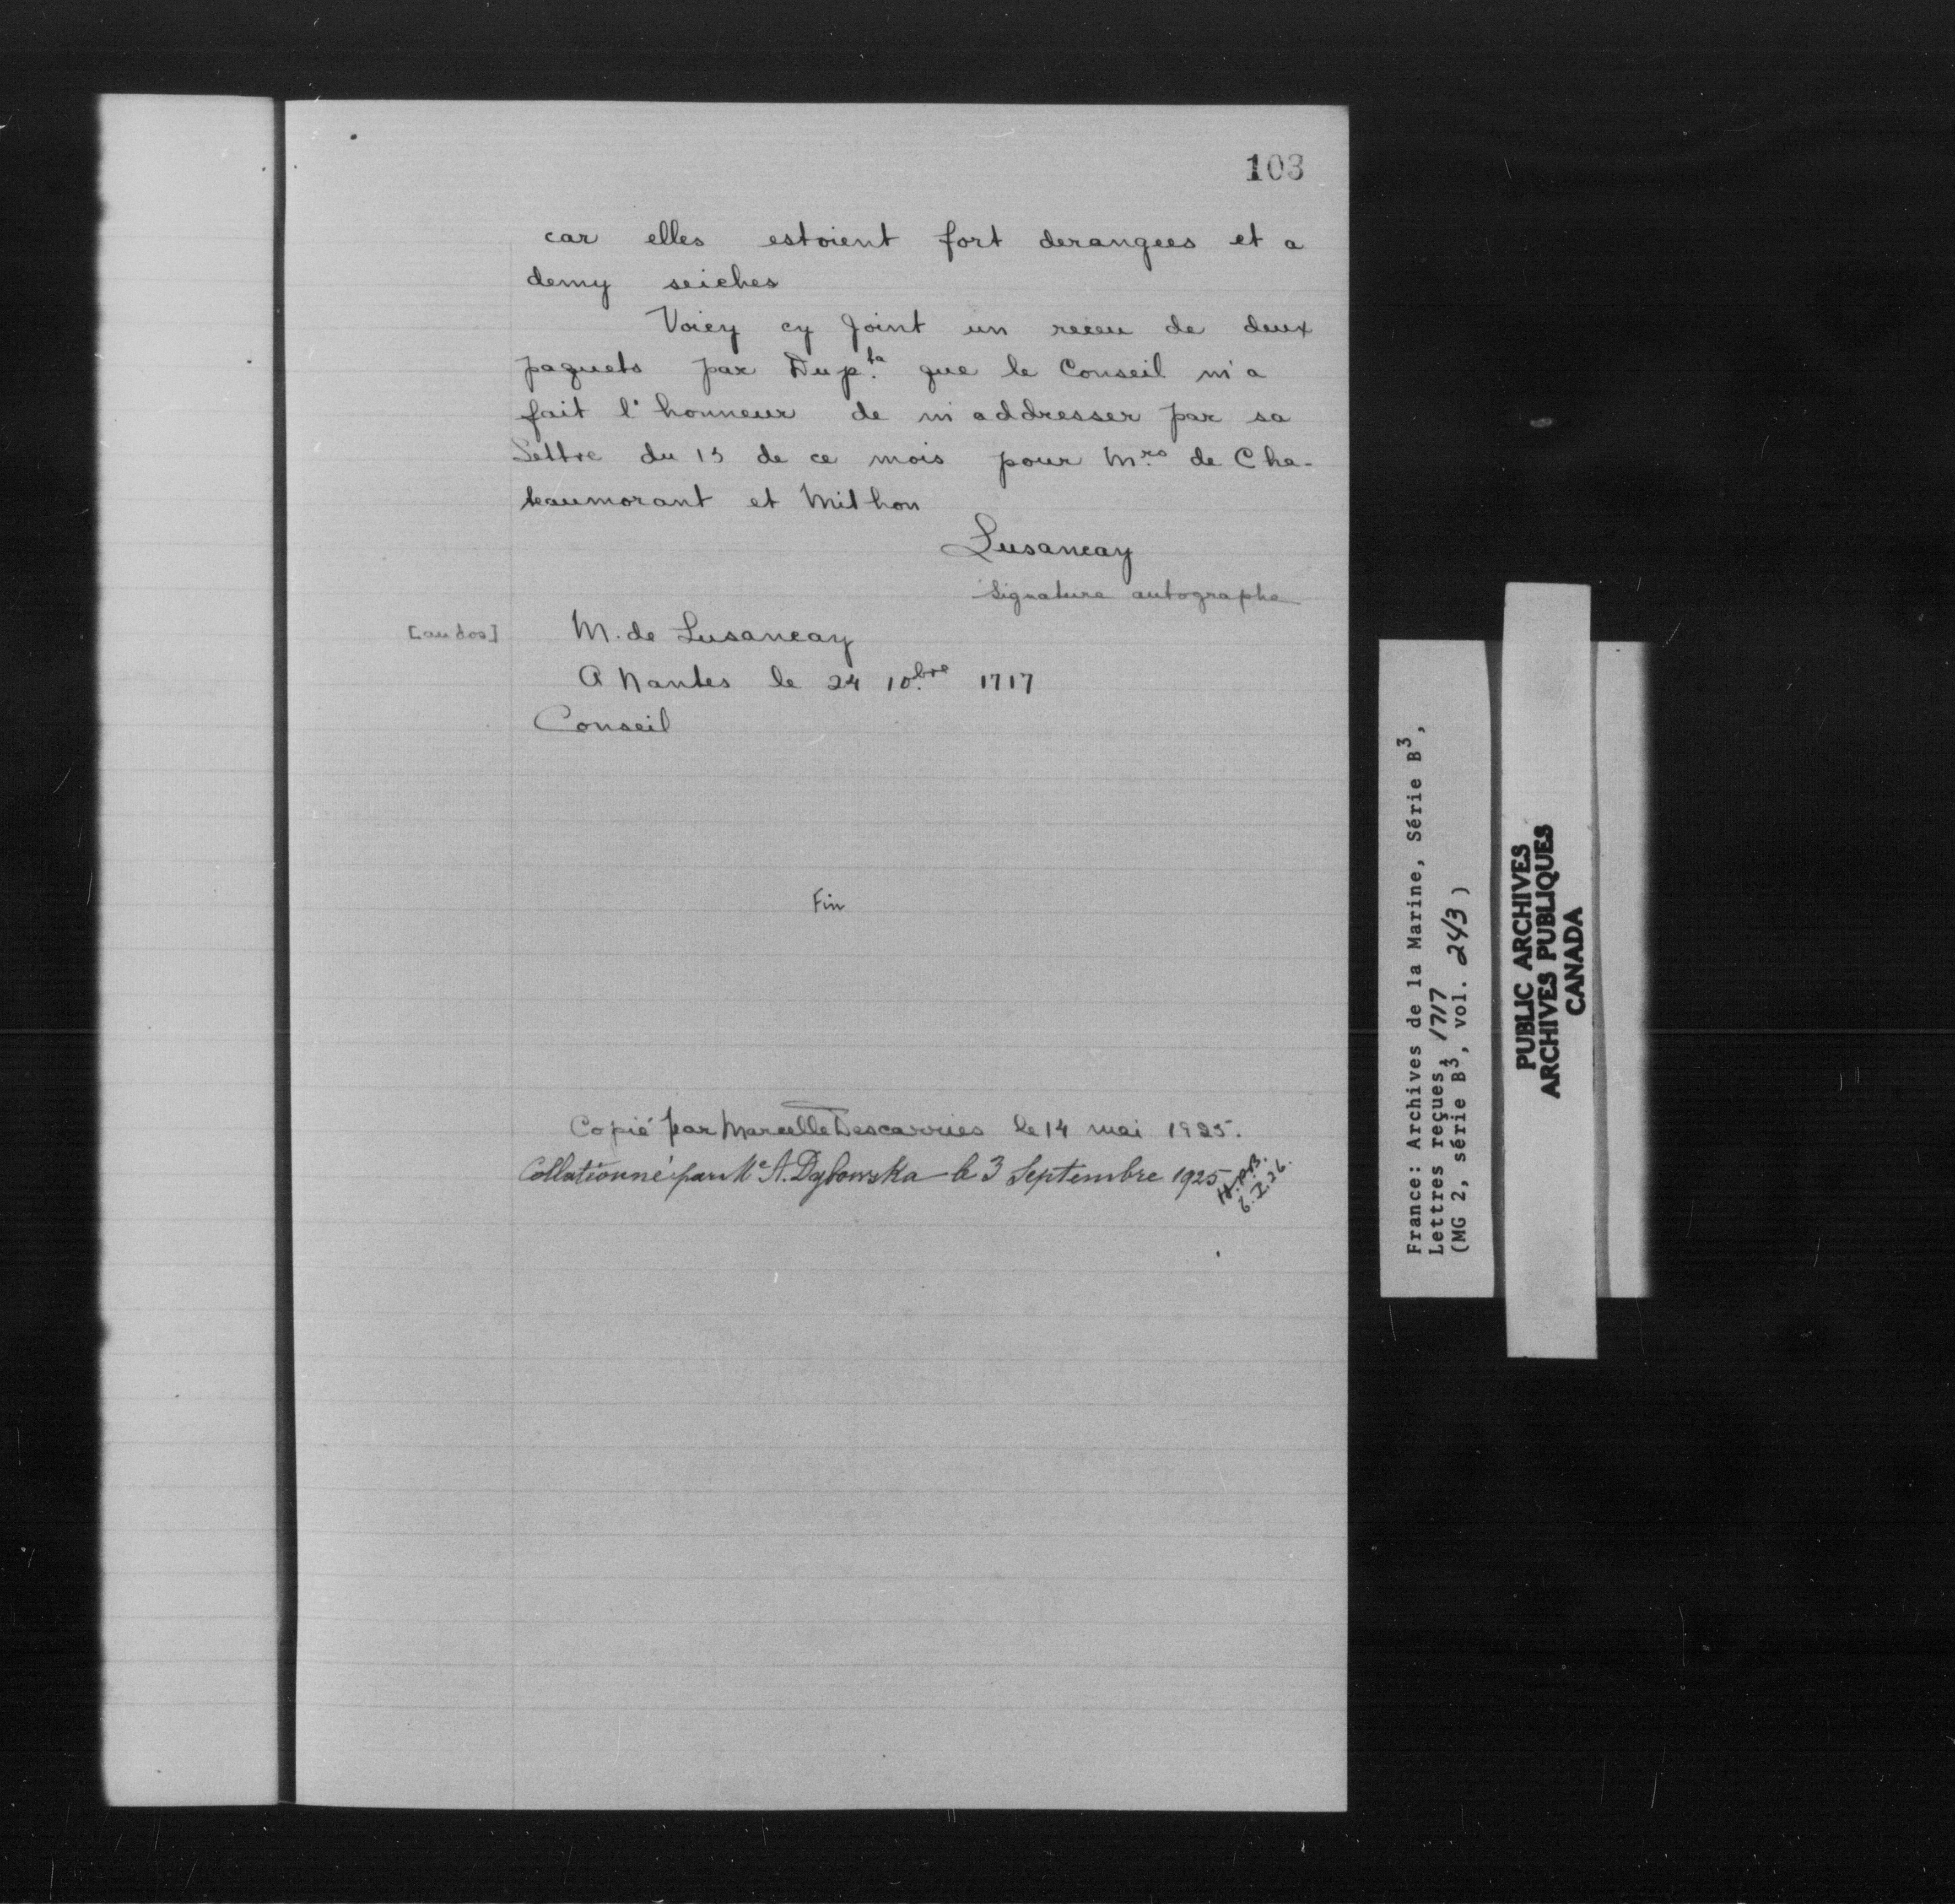 103
car elles estoient fort derangees et a
demy seiches
Voicy cy Joint un receu de deux
paquets par Dup.ta que le Conseil m'a
fait l'honneur de m'addresser par sa
Lettre du 15 de ce mois pour Mrs de Cha-
teaumorant et Mithon
Lusancay
Signature autographe
[au dos] M. de Lusancay
A Nantes le 24 10.bre 1717
Conseil
Fin
Copié par Marcelle Descarries le 14 mai 1925.
Collationné par Me A. Dybowska le 3 Septembre 1925
6.I.26.
France: Archives de la Marine, Série B3,
Lettres reçues, 1717
(MG 2, série B3, vol. 243)
PUBLIC ARCHIVES
ARCHIVES PUBLIQUES
CANADA